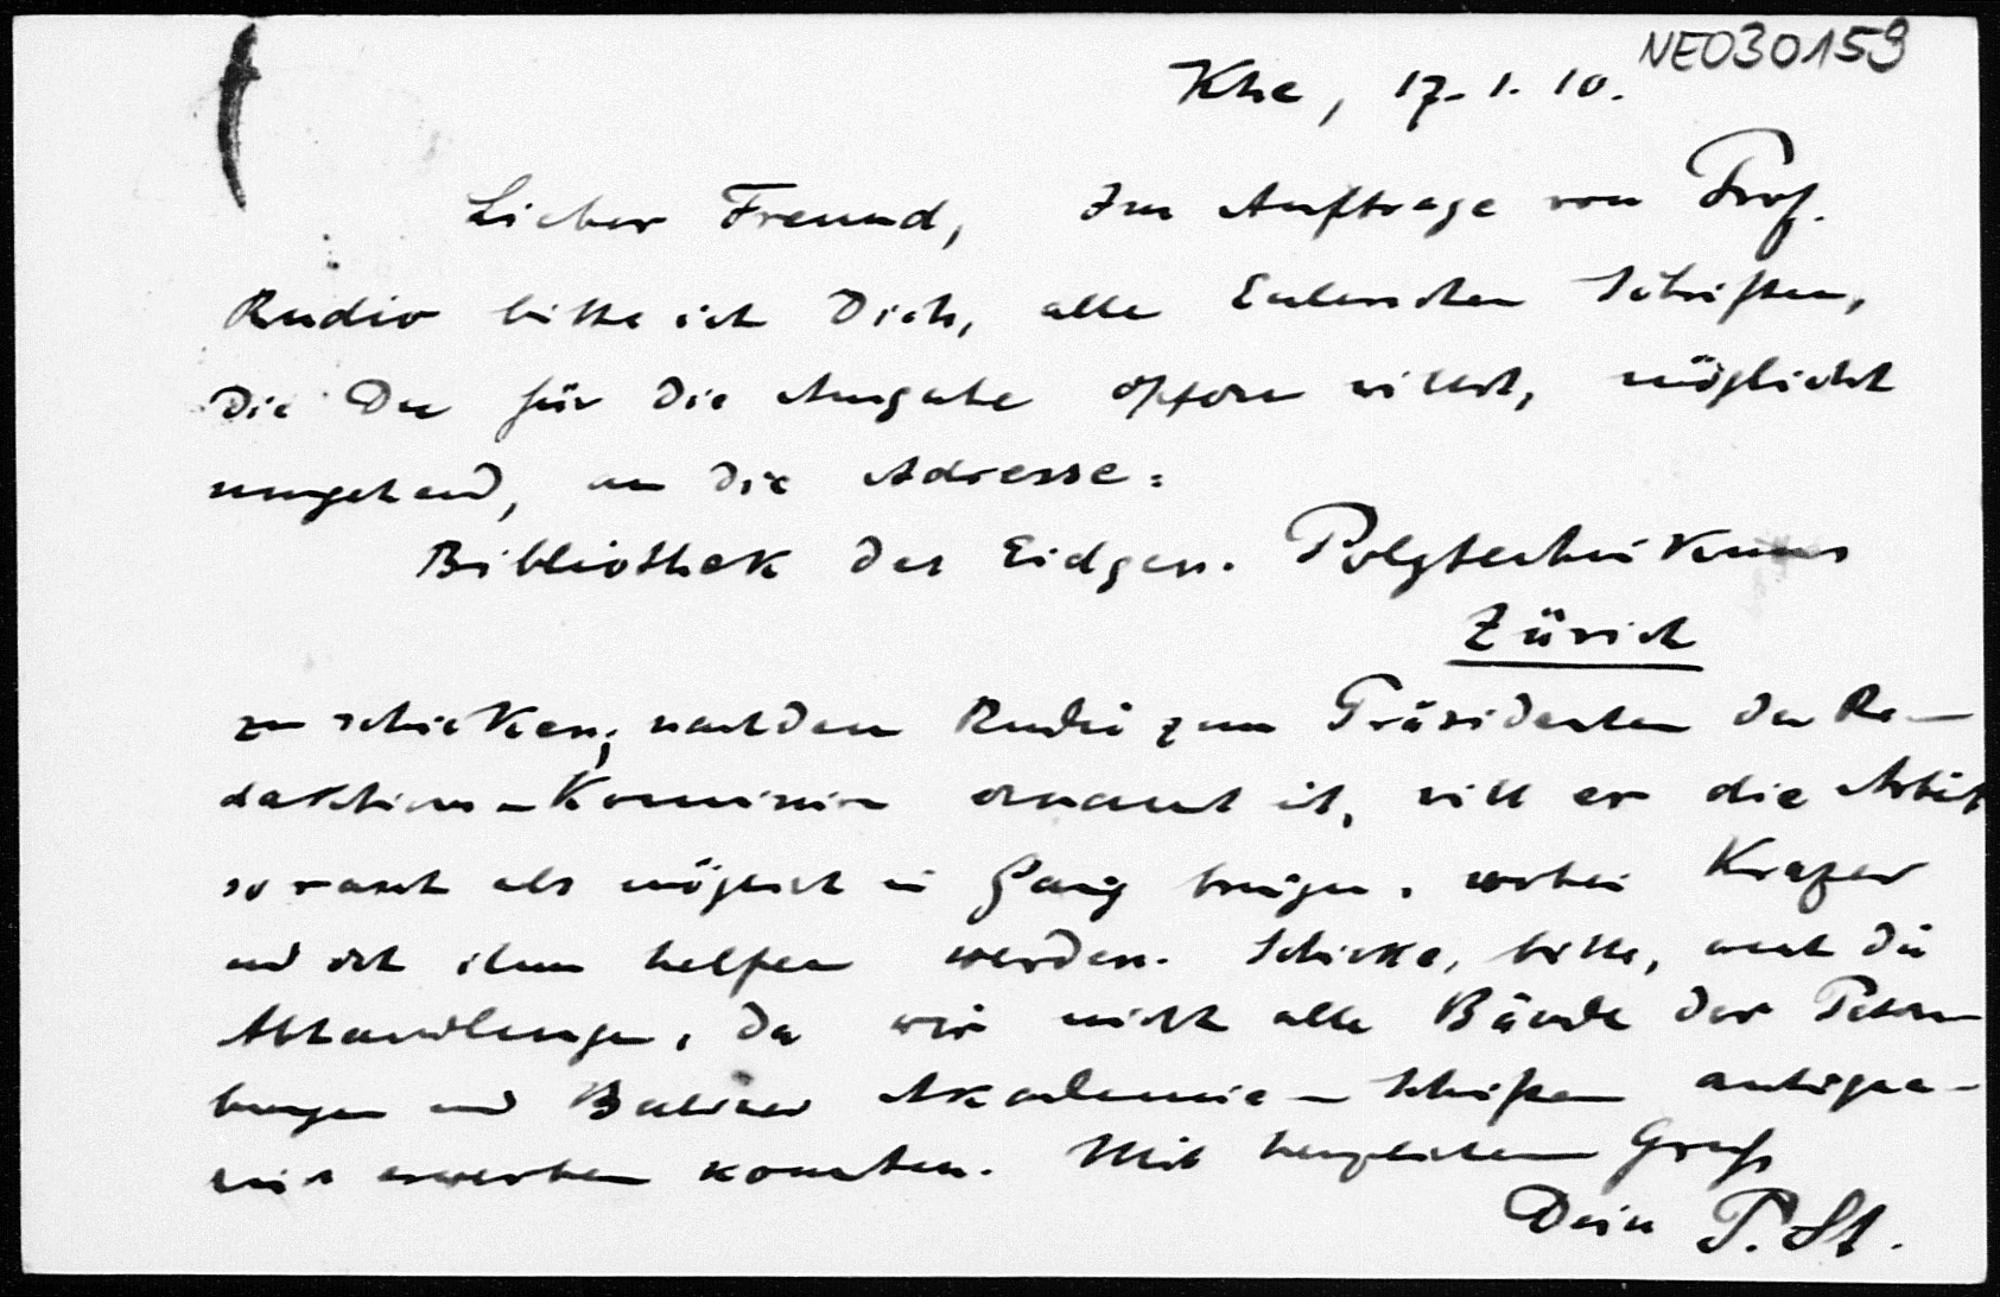 NEO30159
Khe, 17. 1. 10.
Lieber Freund, Im Auftrage von Prof.
Rudio bitte ich Dich, alle Eulerschen Schriften,
die Du für die Ausgabe opfern willst, möglichst
umgehend, an die Adresse:
Bibliothek des Eidgen. Polytechnikums
Zürich
zu schicken; nachdem Rudio zum Präsidenten der Re-
daktions-Kommission ernannt ist, will er die Arbeit
so rasch als möglich in Gang bringen, wobei Krazer
und ich ihm helfen werden. Schicke, bitte, auch die
Abhandlungen, da wir nicht alle Bände der Peters-
burger und Berliner Akademie-Schriften antiqua-
risch erwerben konnten. Mit herzlichem Gruß
Dein P. St.